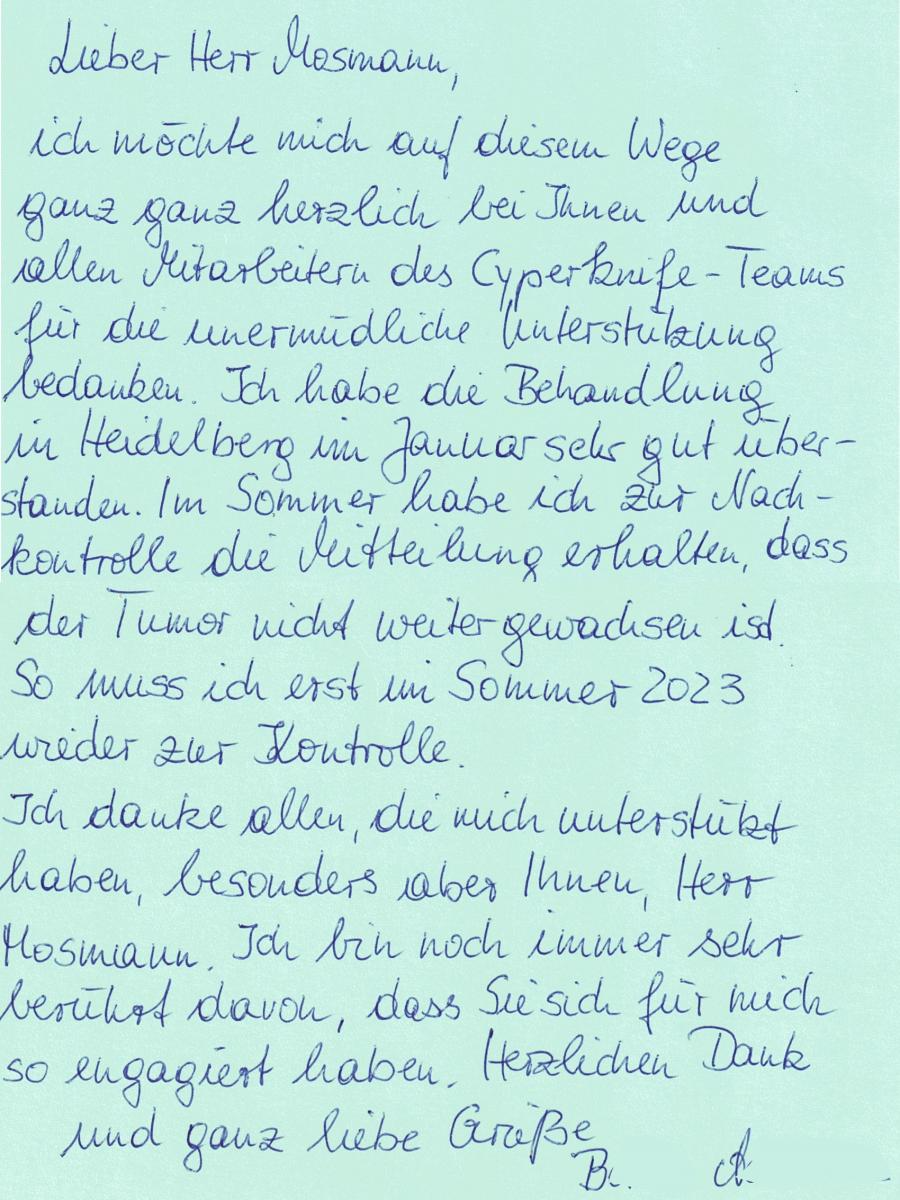 Lieber Herr Mosmann,
ich möchte mich auf diesem Wege
ganz ganz herzlich bei Ihnen und
allen Mitarbeitern des Cyperknife-Teams
für die unermüdliche Unterstützung
bedanken. Ich habe die Behandlung
in Heidelberg im Januar sehr gut über-
standen. Im Sommer habe ich zur Nach-
kontrolle die Mitteilung erhalten, dass
der Tumor nicht weitergewachsen ist.
So muss ich erst im Sommer 2023
wieder zur Kontrolle.
Ich danke allen, die mich unterstützt
haben, besonders aber Ihnen, Herr
Mosmann. Ich bin noch immer sehr
berührt davon, dass Sie sich für mich
so engagiert haben. Herzlichen Dank
und ganz liebe Grüße
B. A.